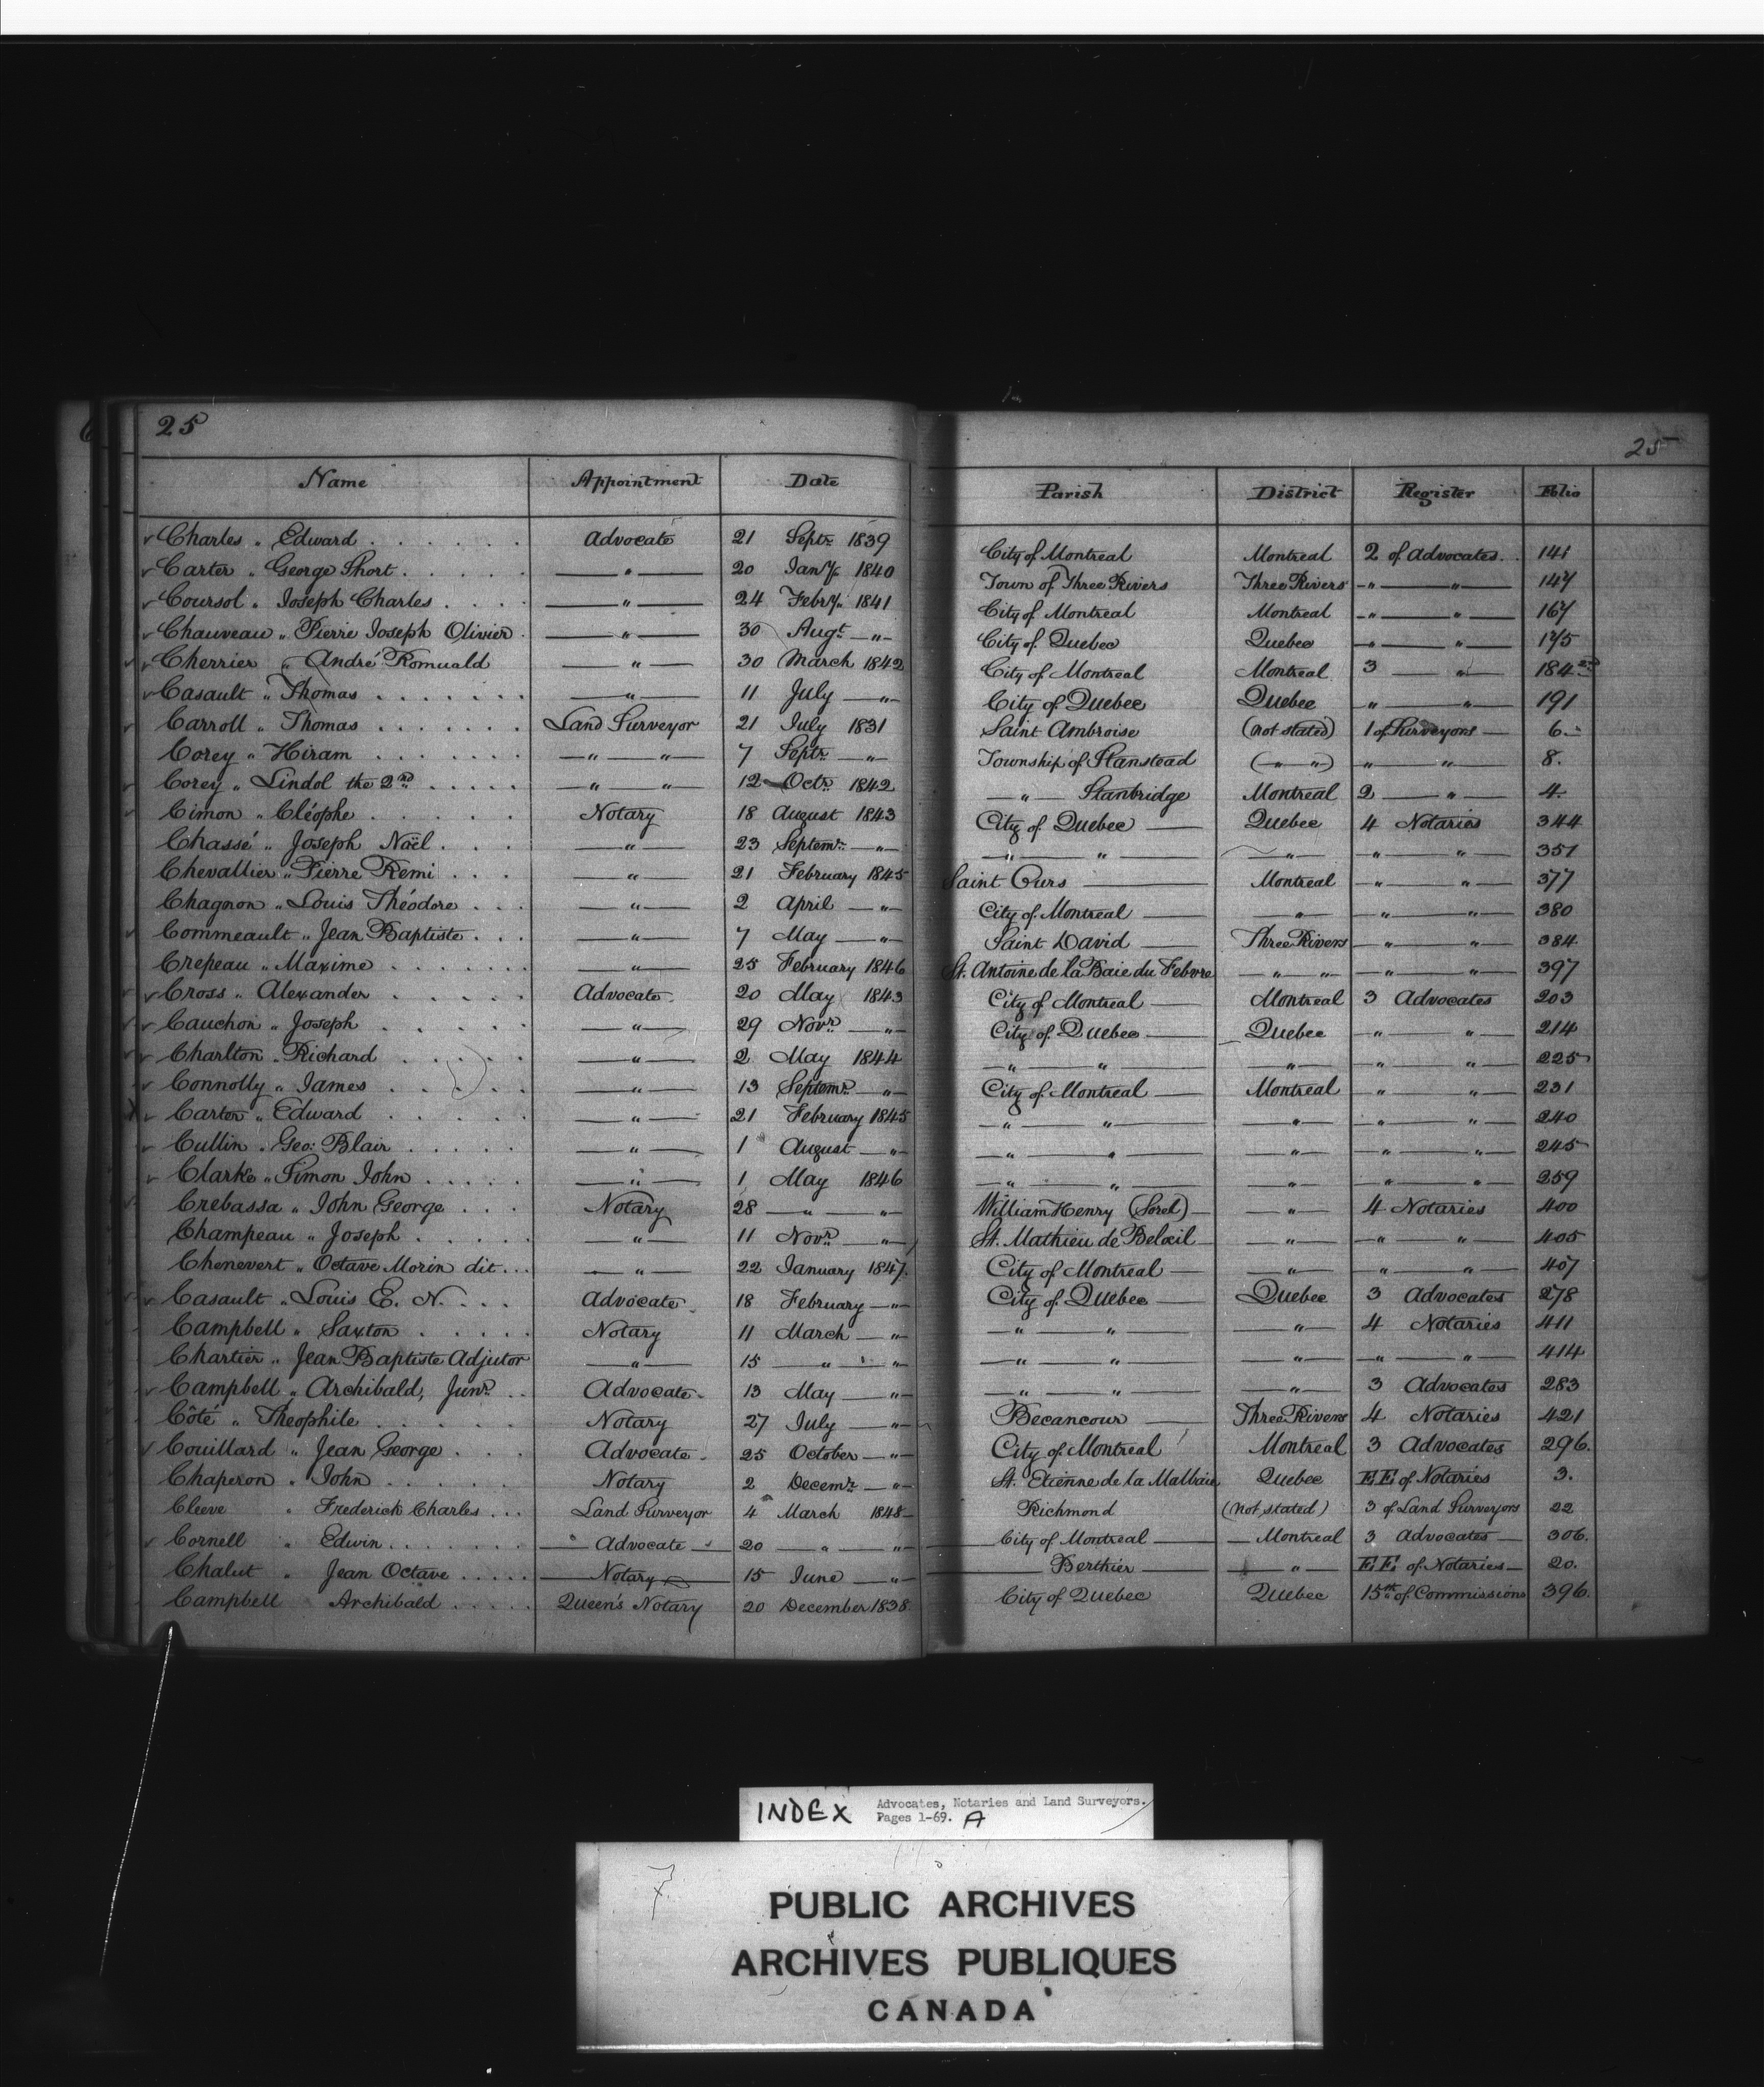 25
25
Name Appointment Date Parish District Register Folio
Charles „ Edward . . . . . . Advocate 21 Septr. 1839 City of Montreal Montreal 2 of Advocates . . 141
Carter „ George Short . . . . . —„— 20 Jany. 1840 Town of Three Rivers Three Rivers —„— „— 147
Coursol „ Joseph Charles . . . . —„— 24 Febry. 1841 City of Montreal Montreal —„— „— 167
Chauveau „ Pierre Joseph Olivier . —„— 30 Augt. —„— City of Quebec Quebec —„— „— 175
Cherrier „ André Romuald —„— 30 March 1842 City of Montreal Montreal 3 —„— 184
Casault „ Thomas . . . . . . . —„— 11 July —„— City of Quebec Quebec —„— „— 191
Carroll „ Thomas . . . . . . . Land Surveyor 21 July 1831 Saint Ambroise (not stated) 1 of Surveyors — 6.
Corey „ Hiram . . . . . . . —„— „— 7 Septr. —„— Township of Stanstead (—„ „—) —„— „— 8.
Corey „ Lindol the 2nd . . . . . —„— „— 12 Octr. 1842 —„— Stanbridge Montreal 2 —„— 4.
Cimon „ Cléophe . . . . . . Notary 18 August 1843 City of Quebec — Quebec 4 Notaries 344
Chassé „ Joseph Naël . . . . —„— 23 Septemr. —„— —„— „— —„— —„— „— 351
Chevallier „ Pierre Remi . . . —„— 21 February 1845 Saint Ours — Montreal —„— „— 377
Chagnon „ Louis Théodore . . . —„— 2 April —„— City of Montreal — —„— —„— „— 380
Commeault „ Jean Baptiste . . . —„— 7 May —„— Saint David — Three Rivers —„— „— 384
Crepeau „ Maxime . . . . . . . —„— 25 February 1846 St. Antoine de la Baie du Febvre —„— „— —„— „— 397
Cross „ Alexander . . . . . Advocate 20 May 1843 City of Montreal — Montreal 3 Advocates 203
Cauchon „ Joseph . . . . . —„— 29 Novr. —„— City of Quebec — Quebec —„— „— 214
Charlton „ Richard . . . . . —„— 2 May 1844 —„— „— —„— —„— „— 225
Connolly „ James . . . . . —„— 13 Septemr. —„— City of Montreal — Montreal —„— „— 231
Carton „ Edward . . . . . —„— 21 February 1845 —„— „— —„— —„— „— 240
Cullin „ Geo: Blair . . . . . —„— 1 August —„— —„— „— —„— —„— „— 245
Clarke „ Simon John . . . . . —„— 1 May 1846 —„— „— —„— —„— „— 259
Crebassa „ John George . . . Notary 28 —„— —„— William Henry (Sorel) — —„— 4 Notaries 400
Champeau „ Joseph . . . . . —„— 11 Novr. —„— St. Mathieu de Belœil — —„— —„— „— 405
Chenevert „ Octave Morin dit . . . —„— 22 January 1847. City of Montreal — —„— —„— „— 407
Casault „ Louis E. N. . . . Advocate 18 February —„— City of Quebec — Quebec 3 Advocates 278
Campbell „ Saxton . . . . . Notary 11 March —„— —„— „— —„— 4 Notaries 411
Chartier „ Jean Baptiste Adjutor —„— 15 —„— „— —„— „— —„— —„— „— 414
Campbell „ Archibald, Junr. . . Advocate 13 May —„— —„— „— —„— 3 Advocates 283
Côté „ Theophile . . . . . Notary 27 July —„— Becancour — Three Rivers 4 Notaries 421
Couillard „ Jean George . . . Advocate 25 October —„— City of Montreal Montreal 3 Advocates 296.
Chaperon „ John . . . . . Notary 2 Decemr. —„— St. Etienne de la Malbaie Quebec E.E. of Notaries 3.
Cleeve „ Frederick Charles . . . Land Surveyor 4 March 1848 — Richmond (not stated) 3 of Land Surveyors 22
Cornell „ Edwin . . . . . . . Advocate — 20 —„— „— City of Montreal — Montreal 3 Advocates — 306.
Chalut „ Jean Octave . . . . . Notary 15 June —„— Berthier — —„— E.E. of Notaries — 20.
Campbell Archibald . . . . . Queen's Notary 20 December 1838 City of Quebec Quebec 15th of Commissions 396.
INDEX Advocates, Notaries and Land Surveyors.
Pages 1-69. A
7
PUBLIC ARCHIVES
ARCHIVES PUBLIQUES
CANADA